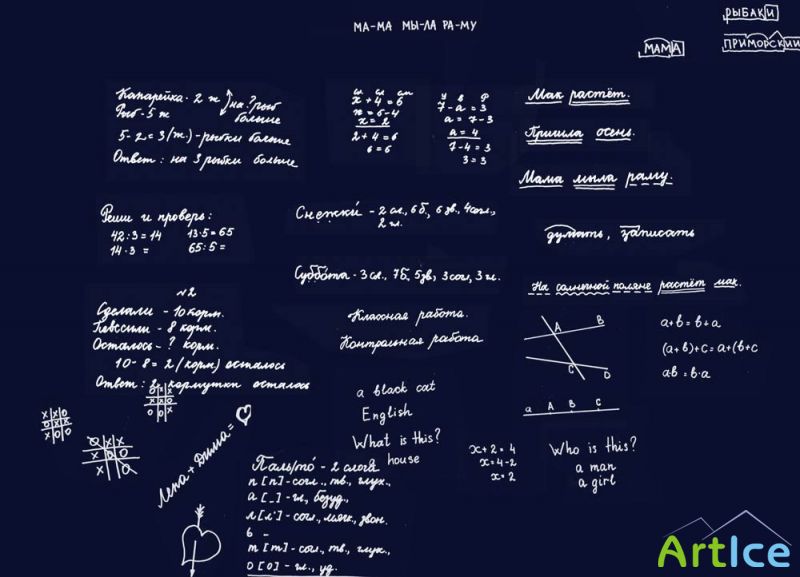 МА-МА МЫ-ЛА РА-МУ
РЫБАКИ
МАМА
ПРИМОРСКИЙ
Канарейка - 2 ж
Рыб - 5 ж
на ? рыб
больше
5-2=3(ж.) - рыбки больше
Ответ: на 3 рыбки больше
сл сл см
x+4=6
x=6-4
x=2
2+4=6
6=6
У В Р
7-а=3
а=7-3
а=4
7-4=3
3=3
Мак растёт.
Пришла осень.
Мама мыла раму.
Реши и проверь:
42:3=14 13·5=65
14·3= 65:5=
Снежки - 2 сл., 6 б., 6 зв., 4 согл.,
2 гл.
думать, записать
Суббота - 3 сл., 7 б., 5 зв., 3 сол, 3 гл.
На солнечной поляне растёт мак.
№2
Сделали - 10 корм.
- 8 корм.
Осталось - ? корм.
10-8=2(корм) осталось
Ответ: 2 кормушки осталось
Классная работа.
Контрольная работа
A B
C D
a A B C
а+в=в+а
(а+в)+с=а+(в+с
ав=в·а
a black cat
English
What is this?
a house
x+2=4
x=4-2
x=2
Who is this?
a man
a girl
X X O
O X X
X O O
O X X
X O O
X O
O X X
X X O
O O X
Лена + Дима =
Пальто - 2 слога
п [п] - согл., тв., глух.,
а [_] - гл., безуд.,
л [л'] - согл., мягк., звон.
ь -
т [т] - согл., тв., глух.,
о [о] - гл., уд.
ArtIce